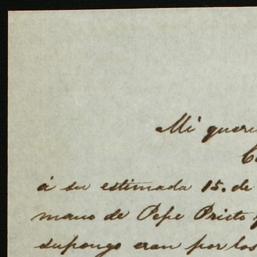 Mi queri
C
á su estimada 15. de
mano de Pepe Prieto y
supongo eran por los